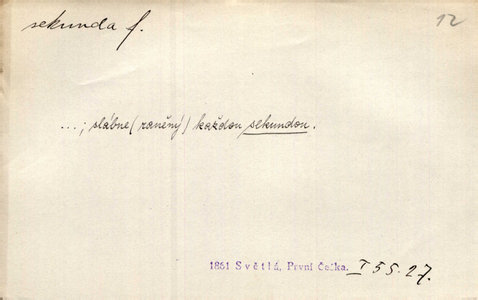 sekunda f.
12
...; slábne (raněný) každou sekundou.
1861 Světlá, První Češka. I 55.27.